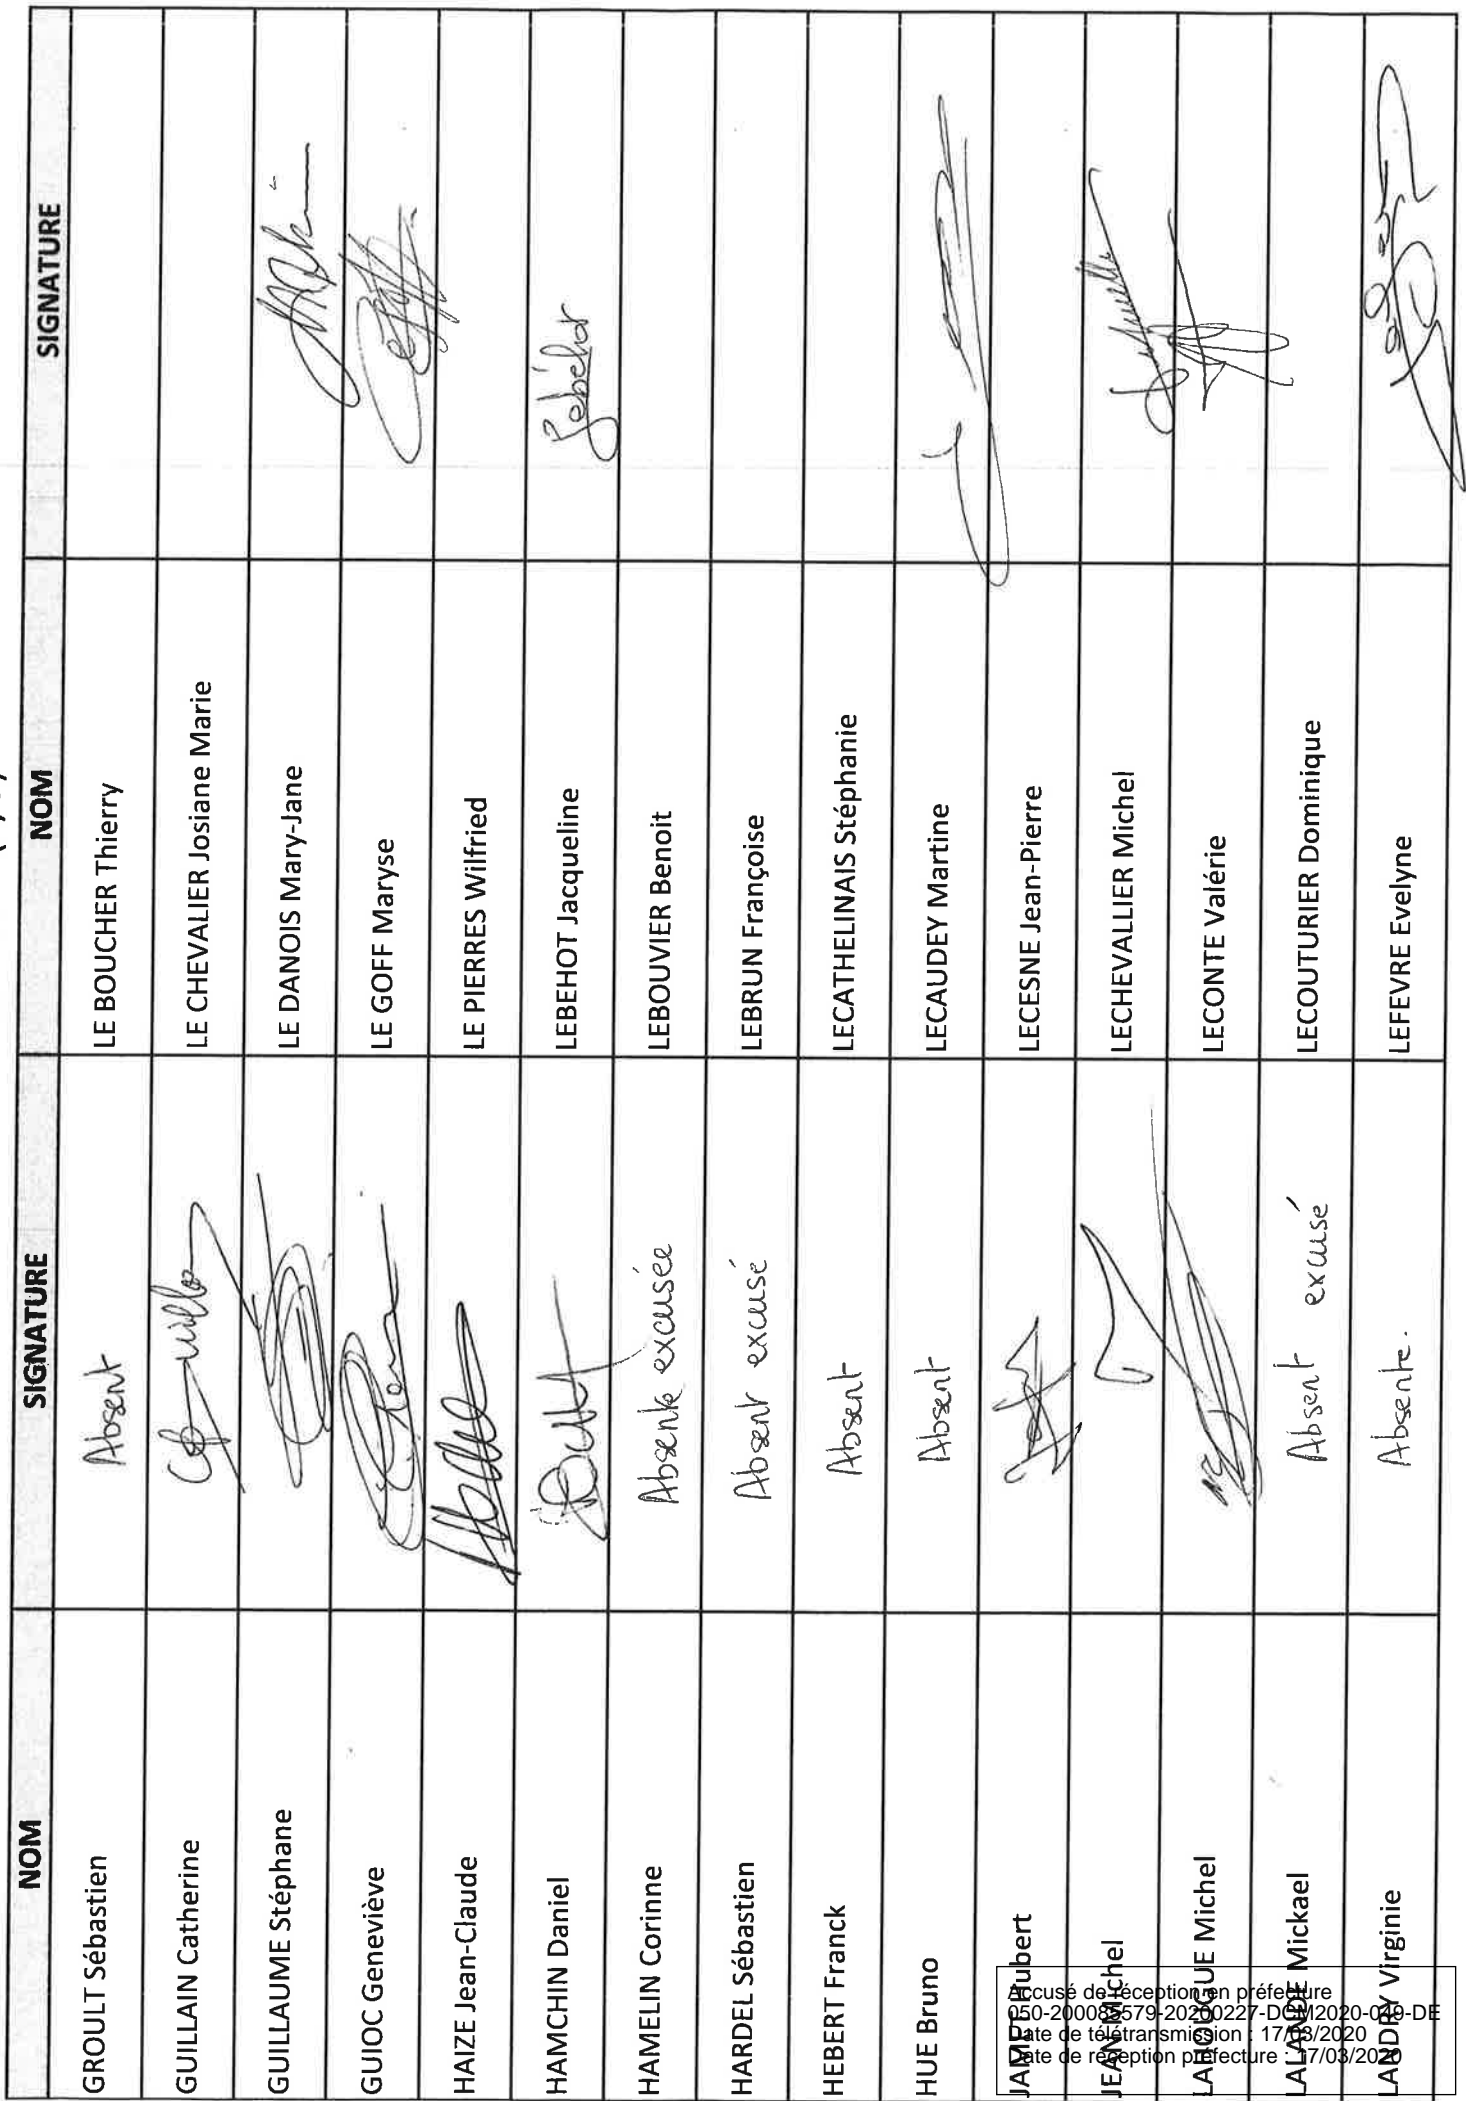 NOM SIGNATURE NOM SIGNATURE
GROULT Sébastien Absent LE BOUCHER Thierry
GUILLAIN Catherine LE CHEVALIER Josiane Marie
GUILLAUME Stéphane LE DANOIS Mary-Jane
GUIOC Geneviève LE GOFF Maryse
HAIZE Jean-Claude LE PIERRES Wilfried
HAMCHIN Daniel LEBEHOT Jacqueline Lebéhot
HAMELIN Corinne Absente excusée LEBOUVIER Benoit
HARDEL Sébastien Absent excusé LEBRUN Françoise
HEBERT Franck Absent LECATHELINAIS Stéphanie
HUE Bruno Absent LECAUDEY Martine
JAMET Hubert LECESNE Jean-Pierre
JEAN Michel LECHEVALLIER Michel
LAHOUGUE Michel LECONTE Valérie
LALANDE Mickael Absent excusé LECOUTURIER Dominique
LANDRY Virginie Absente. LEFEVRE Evelyne
Accusé de réception en préfecture
050-200085579-20200227-DCM2020-049-DE
Date de télétransmission : 17/03/2020
Date de réception préfecture : 17/03/2020